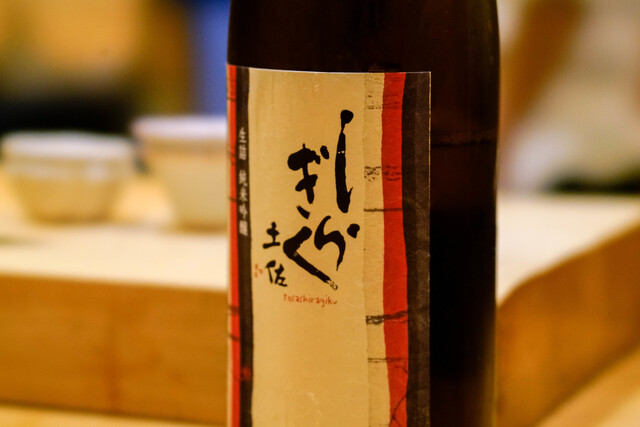 しら
ぎく
土佐
Tosashiragiku
生詰 純米吟醸